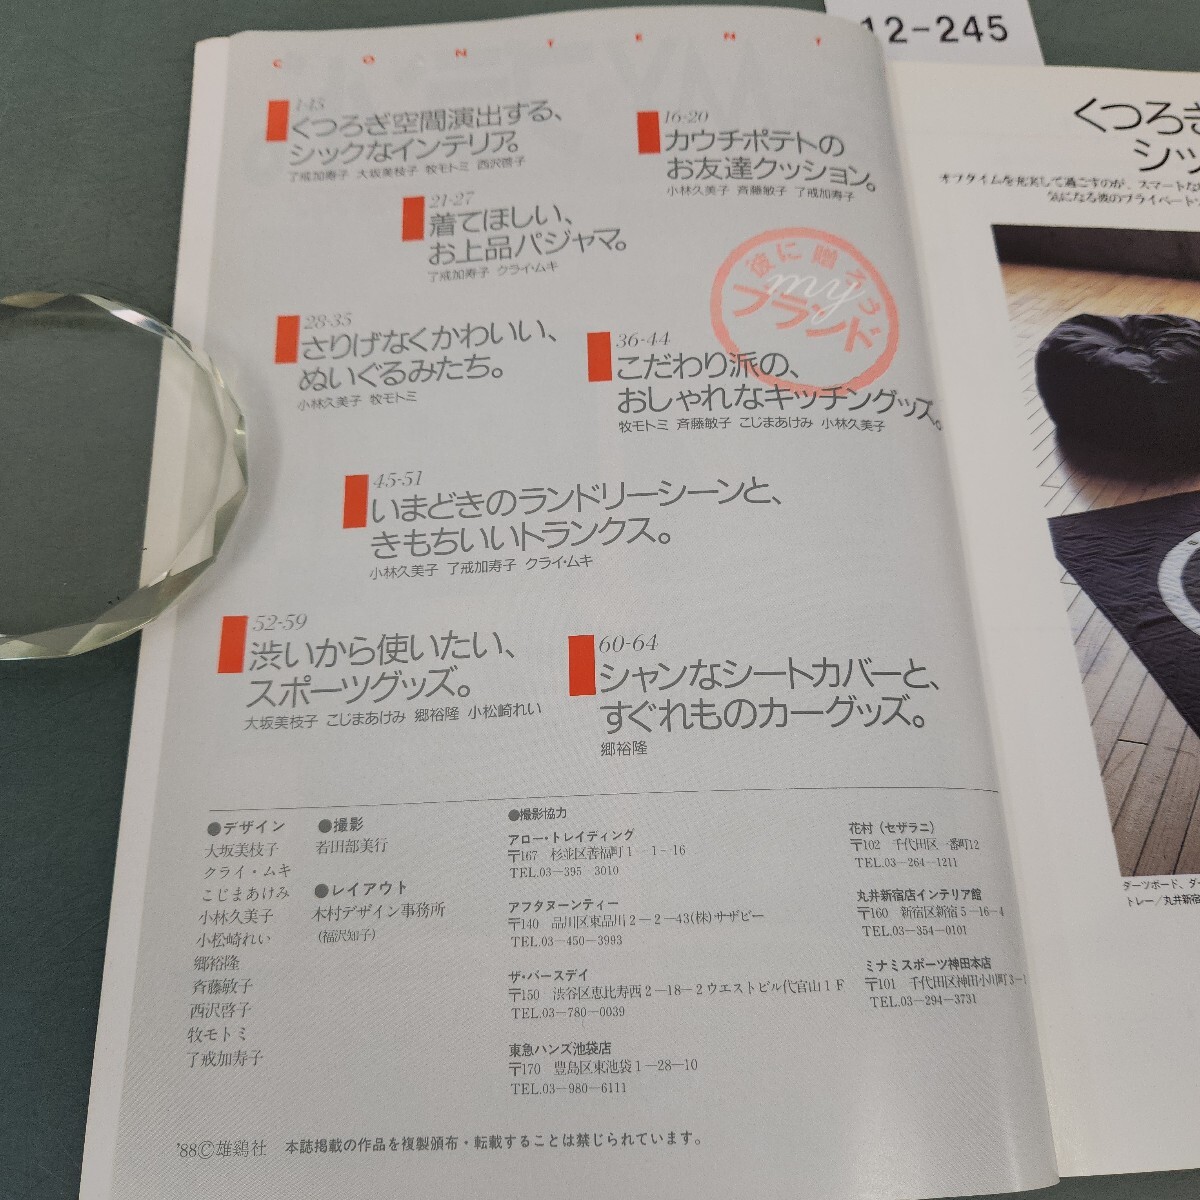 12-245
CONTENT
1-15
くつろぎ空間演出する、
シックなインテリア。
了戒加寿子 大坂美枝子 牧モトミ 西沢啓子
16-20
カウチポテトの
お友達クッション。
小林久美子 斉藤敏子 了戒加寿子
21-27
着てほしい、
お上品パジャマ。
了戒加寿子 クライ・ムキ
彼に贈ろう
my
ブランド
28-35
さりげなくかわいい、
ぬいぐるみたち。
小林久美子 牧モトミ
36-44
こだわり派の、
おしゃれなキッチングッズ。
牧モトミ 斉藤敏子 こじまあけみ 小林久美子
45-51
いまどきのランドリーシーンと、
きもちいいトランクス。
小林久美子 了戒加寿子 クライ・ムキ
52-59
渋いから使いたい、
スポーツグッズ。
大坂美枝子 こじまあけみ 郷裕隆 小松崎れい
60-64
シャンなシートカバーと、
すぐれものカーグッズ。
郷裕隆
●デザイン
大坂美枝子
クライ・ムキ
こじまあけみ
小林久美子
小松崎れい
郷裕隆
斉藤敏子
西沢啓子
牧モトミ
了戒加寿子
●撮影
若田部美行
●レイアウト
木村デザイン事務所
(福沢知子)
●撮影協力
アロー・トレイディング
〒167 杉並区善福町1-1-16
TEL.03-395-3010
アフタヌーンティー
〒140 品川区東品川2-2-43(株)サザビー
TEL.03-450-3993
ザ・バースデイ
〒150 渋谷区恵比寿西2-18-2ウエストビル代官山1F
TEL.03-780-0039
東急ハンズ池袋店
〒170 豊島区東池袋1-28-10
TEL.03-980-6111
花村(セザラニ)
〒102 千代田区一番町12
TEL.03-264-1211
丸井新宿店インテリア館
〒160 新宿区新宿5-16-4
TEL.03-354-0101
ミナミスポーツ神田本店
〒101 千代田区神田小川町3-1
TEL.03-294-3731
'88©雄鷄社 本誌掲載の作品を複製頒布・転載することは禁じられています。
くつろぎ
シッ
オフタイムを充実して過ごすのが、スマートな
気になる彼のプライベート
ダーツボード、ダー
トレー/丸井新宿